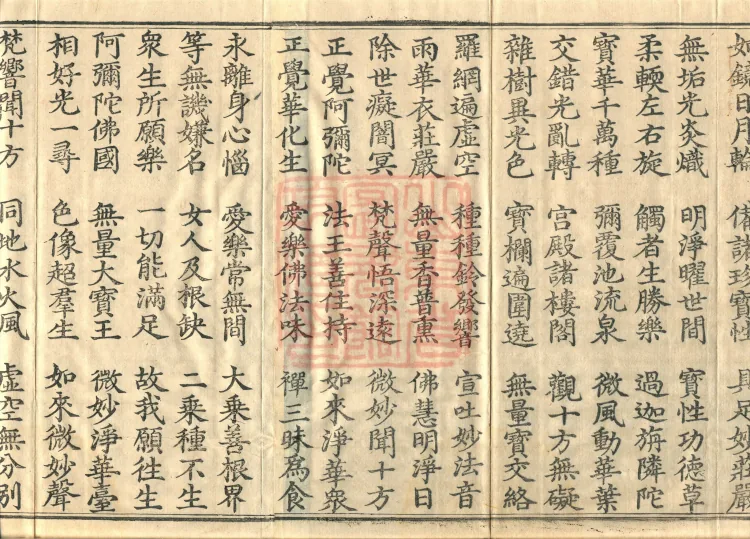 如鏡日月輪 備諸珍寶性 具足妙莊嚴
無垢光炎熾 明淨曜世間 寶性功德草
柔輭左右旋 觸者生勝樂 過迦旃隣陀
寶華千萬種 彌覆池流泉 微風動華葉
交錯光亂轉 宮殿諸樓閣 觀十方無礙
雜樹異光色 寶欄遍圍遶 無量寶交絡
羅網遍虛空 種種鈴發響 宣吐妙法音
雨華衣莊嚴 無量香普熏 佛慧明淨日
除世癡闇冥 梵聲悟深遠 微妙聞十方
正覺阿彌陀 法王善住持 如來淨華衆
正覺華化生 愛樂佛法味 禪三昧爲食
永離身心惱 愛樂常無間 大乘善根界
等無譏嫌名 女人及根缺 二乘種不生
衆生所願樂 一切能滿足 故我願往生
阿彌陀佛國 無量大寶王 微妙淨華臺
相好光一尋 色像超羣生 如來微妙聲
梵響聞十方 同地水火風 虛空無分別